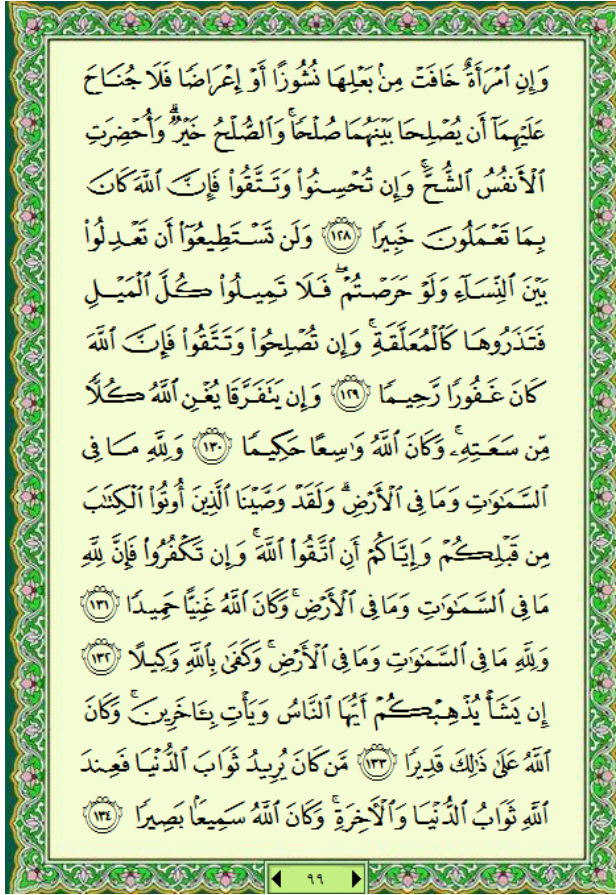 وَإِنِ ٱمْرَأَةٌ خَافَتْ مِنۢ بَعْلِهَا نُشُوزًا أَوْ إِعْرَاضًا فَلَا جُنَاحَ
عَلَيْهِمَآ أَن يُصْلِحَا بَيْنَهُمَا صُلْحًاۚ وَٱلصُّلْحُ خَيْرٌۗ وَأُحْضِرَتِ
ٱلْأَنفُسُ ٱلشُّحَّۚ وَإِن تُحْسِنُوا۟ وَتَتَّقُوا۟ فَإِنَّ ٱللَّهَ كَانَ
بِمَا تَعْمَلُونَ خَبِيرًا ١٢٨ وَلَن تَسْتَطِيعُوٓا۟ أَن تَعْدِلُوا۟
بَيْنَ ٱلنِّسَآءِ وَلَوْ حَرَصْتُمْۖ فَلَا تَمِيلُوا۟ كُلَّ ٱلْمَيْلِ
فَتَذَرُوهَا كَٱلْمُعَلَّقَةِۚ وَإِن تُصْلِحُوا۟ وَتَتَّقُوا۟ فَإِنَّ ٱللَّهَ
كَانَ غَفُورًا رَّحِيمًا ١٢٩ وَإِن يَتَفَرَّقَا يُغْنِ ٱللَّهُ كُلًّا
مِّن سَعَتِهِۦۚ وَكَانَ ٱللَّهُ وَٰسِعًا حَكِيمًا ١٣٠ وَلِلَّهِ مَا فِى
ٱلسَّمَٰوَٰتِ وَمَا فِى ٱلْأَرْضِۗ وَلَقَدْ وَصَّيْنَا ٱلَّذِينَ أُوتُوا۟ ٱلْكِتَٰبَ
مِن قَبْلِكُمْ وَإِيَّاكُمْ أَنِ ٱتَّقُوا۟ ٱللَّهَۚ وَإِن تَكْفُرُوا۟ فَإِنَّ لِلَّهِ
مَا فِى ٱلسَّمَٰوَٰتِ وَمَا فِى ٱلْأَرْضِۚ وَكَانَ ٱللَّهُ غَنِيًّا حَمِيدًا ١٣١
وَلِلَّهِ مَا فِى ٱلسَّمَٰوَٰتِ وَمَا فِى ٱلْأَرْضِۚ وَكَفَىٰ بِٱللَّهِ وَكِيلًا ١٣٢
إِن يَشَأْ يُذْهِبْكُمْ أَيُّهَا ٱلنَّاسُ وَيَأْتِ بِـَٔاخَرِينَۚ وَكَانَ
ٱللَّهُ عَلَىٰ ذَٰلِكَ قَدِيرًا ١٣٣ مَّن كَانَ يُرِيدُ ثَوَابَ ٱلدُّنْيَا فَعِندَ
ٱللَّهِ ثَوَابُ ٱلدُّنْيَا وَٱلْءَاخِرَةِۚ وَكَانَ ٱللَّهُ سَمِيعًۢا بَصِيرًا ١٣٤
٩٩